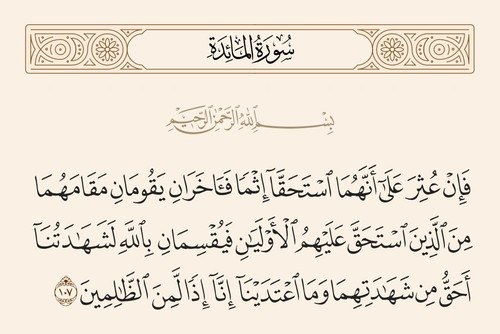 سُورَةُ المَائِدَةِ
بِسْمِ ٱللَّهِ ٱلرَّحْمَٰنِ ٱلرَّحِيمِ
فَإِنْ عُثِرَ عَلَىٰٓ أَنَّهُمَا ٱسْتَحَقَّآ إِثْمًا فَـَٔاخَرَانِ يَقُومَانِ مَقَامَهُمَا
مِنَ ٱلَّذِينَ ٱسْتَحَقَّ عَلَيْهِمُ ٱلْأَوْلَيَـٰنِ فَيُقْسِمَانِ بِٱللَّهِ لَشَهَـٰدَتُنَآ
أَحَقُّ مِن شَهَـٰدَتِهِمَا وَمَا ٱعْتَدَيْنَآ إِنَّآ إِذًا لَّمِنَ ٱلظَّـٰلِمِينَ ١٠٧